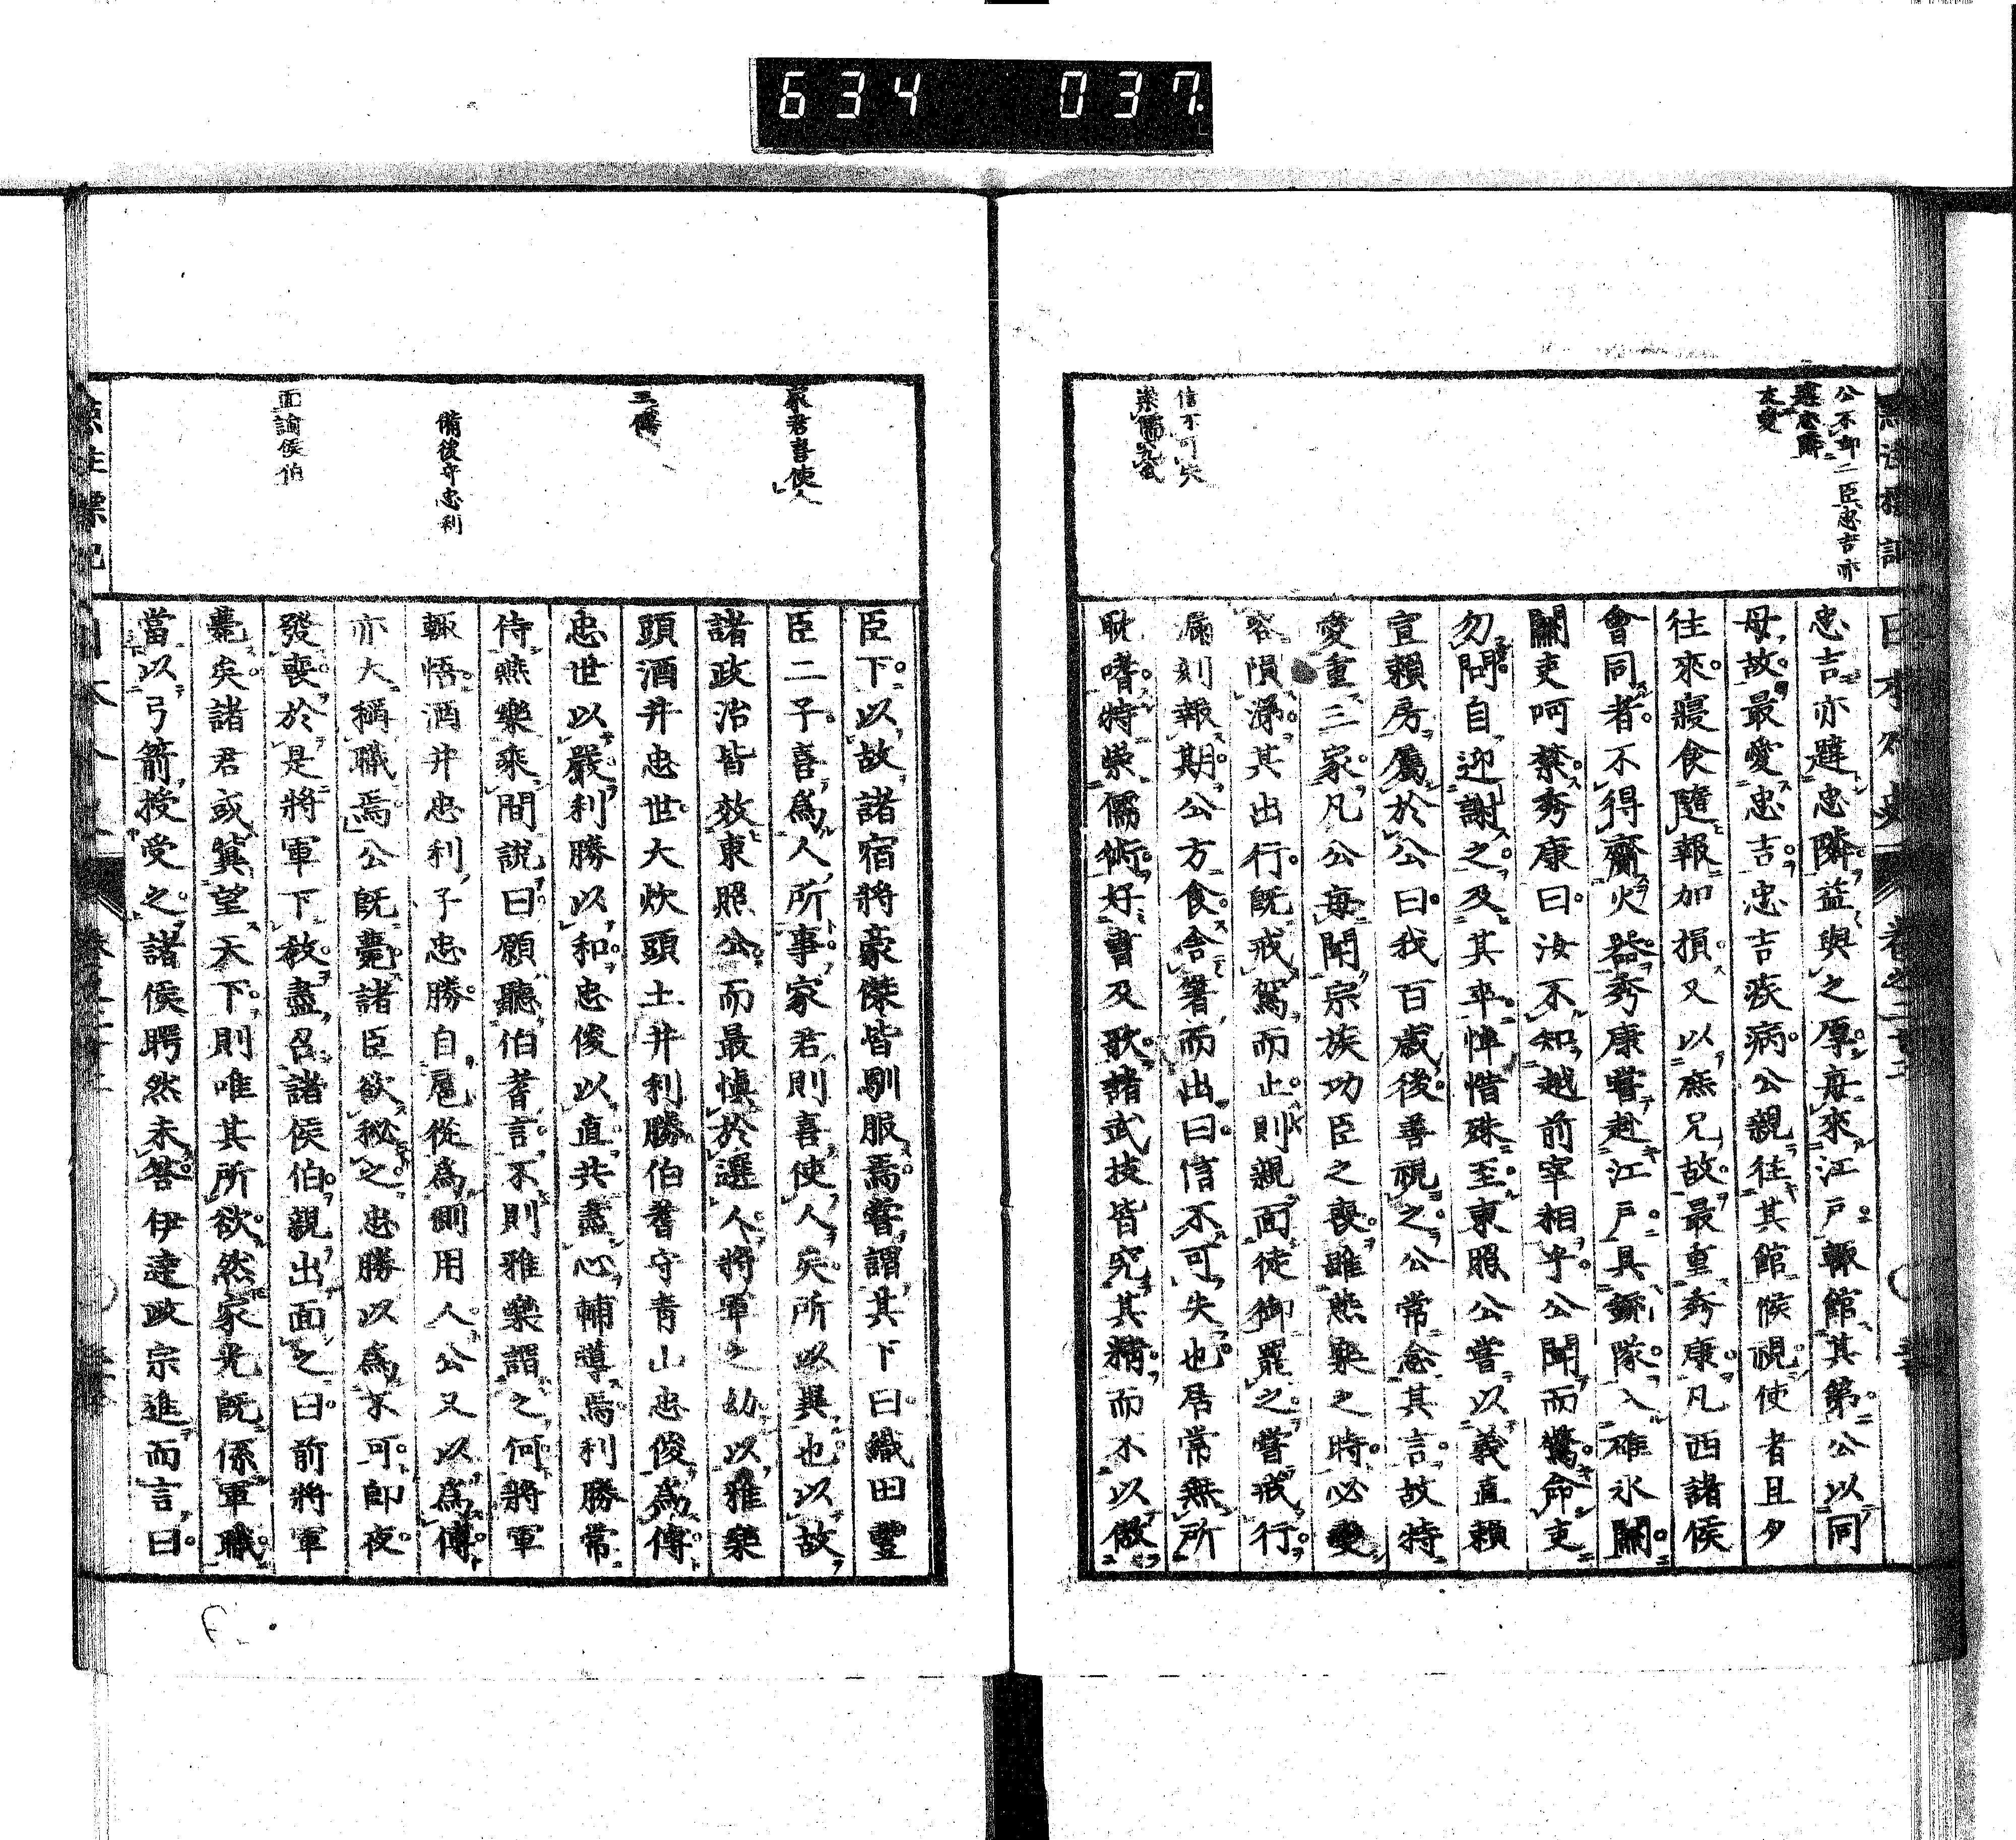 634 037
公不卸二臣忠吉亦
忠吉亦避忠隣益與之厚每來江戸輙館其第公以同
母故最愛忠吉忠吉疾病公親往其館候視使者且夕
往來寢食隨報加損又以庶兄故最重秀康凡西諸侯
會同者不得齎火器秀康嘗赴江戸具鎗隊入碓氷關
關吏呵禁秀康曰汝不知越前宰相乎公聞而驚命吏
勿問自迎謝之及其卒悼惜殊至東照公嘗以義直賴
宣賴房屬於公曰我百歲後善視之公常念其言故特
愛重三家凡公每聞宗族功臣之喪雖燕樂之時必變
容隕涕其出行既戒駕而止則親面徒御罷之嘗戒行
漏刻報期公方食舍箸而出曰信不可失也居常無所
耽嗜特崇儒術好書及歌諸武技皆究其精而不以傲
信不可失
臣下以故諸宿將豪傑皆馴服焉嘗謂其下曰織田豐
臣二子喜爲人所事家君則喜使人矣所以異也以故
諸政治皆效東照公而最愼於選人將軍之幼以雅樂
頭酒井忠世大炊頭土井利勝伯耆守青山忠俊爲傅
忠世以嚴利勝以和忠俊以直共盡心輔導焉利勝常
侍燕樂乘間説曰願聽伯耆言不則雅樂謂之何將軍
輙悟酒井忠利子忠勝自扈從爲側用人公又以爲傅
亦大稱職焉公既薨諸臣欲秘之忠勝以爲不可即夜
發喪於是將軍下赦盡召諸侯伯親出面之曰前將軍
薨矣諸君或冀望天下則唯其所欲然家光既係軍職
當以弓箭授受之諸侯愕然未答伊達政宗進而言曰
家君喜使人
三傅
備後守忠利
面諭侯伯